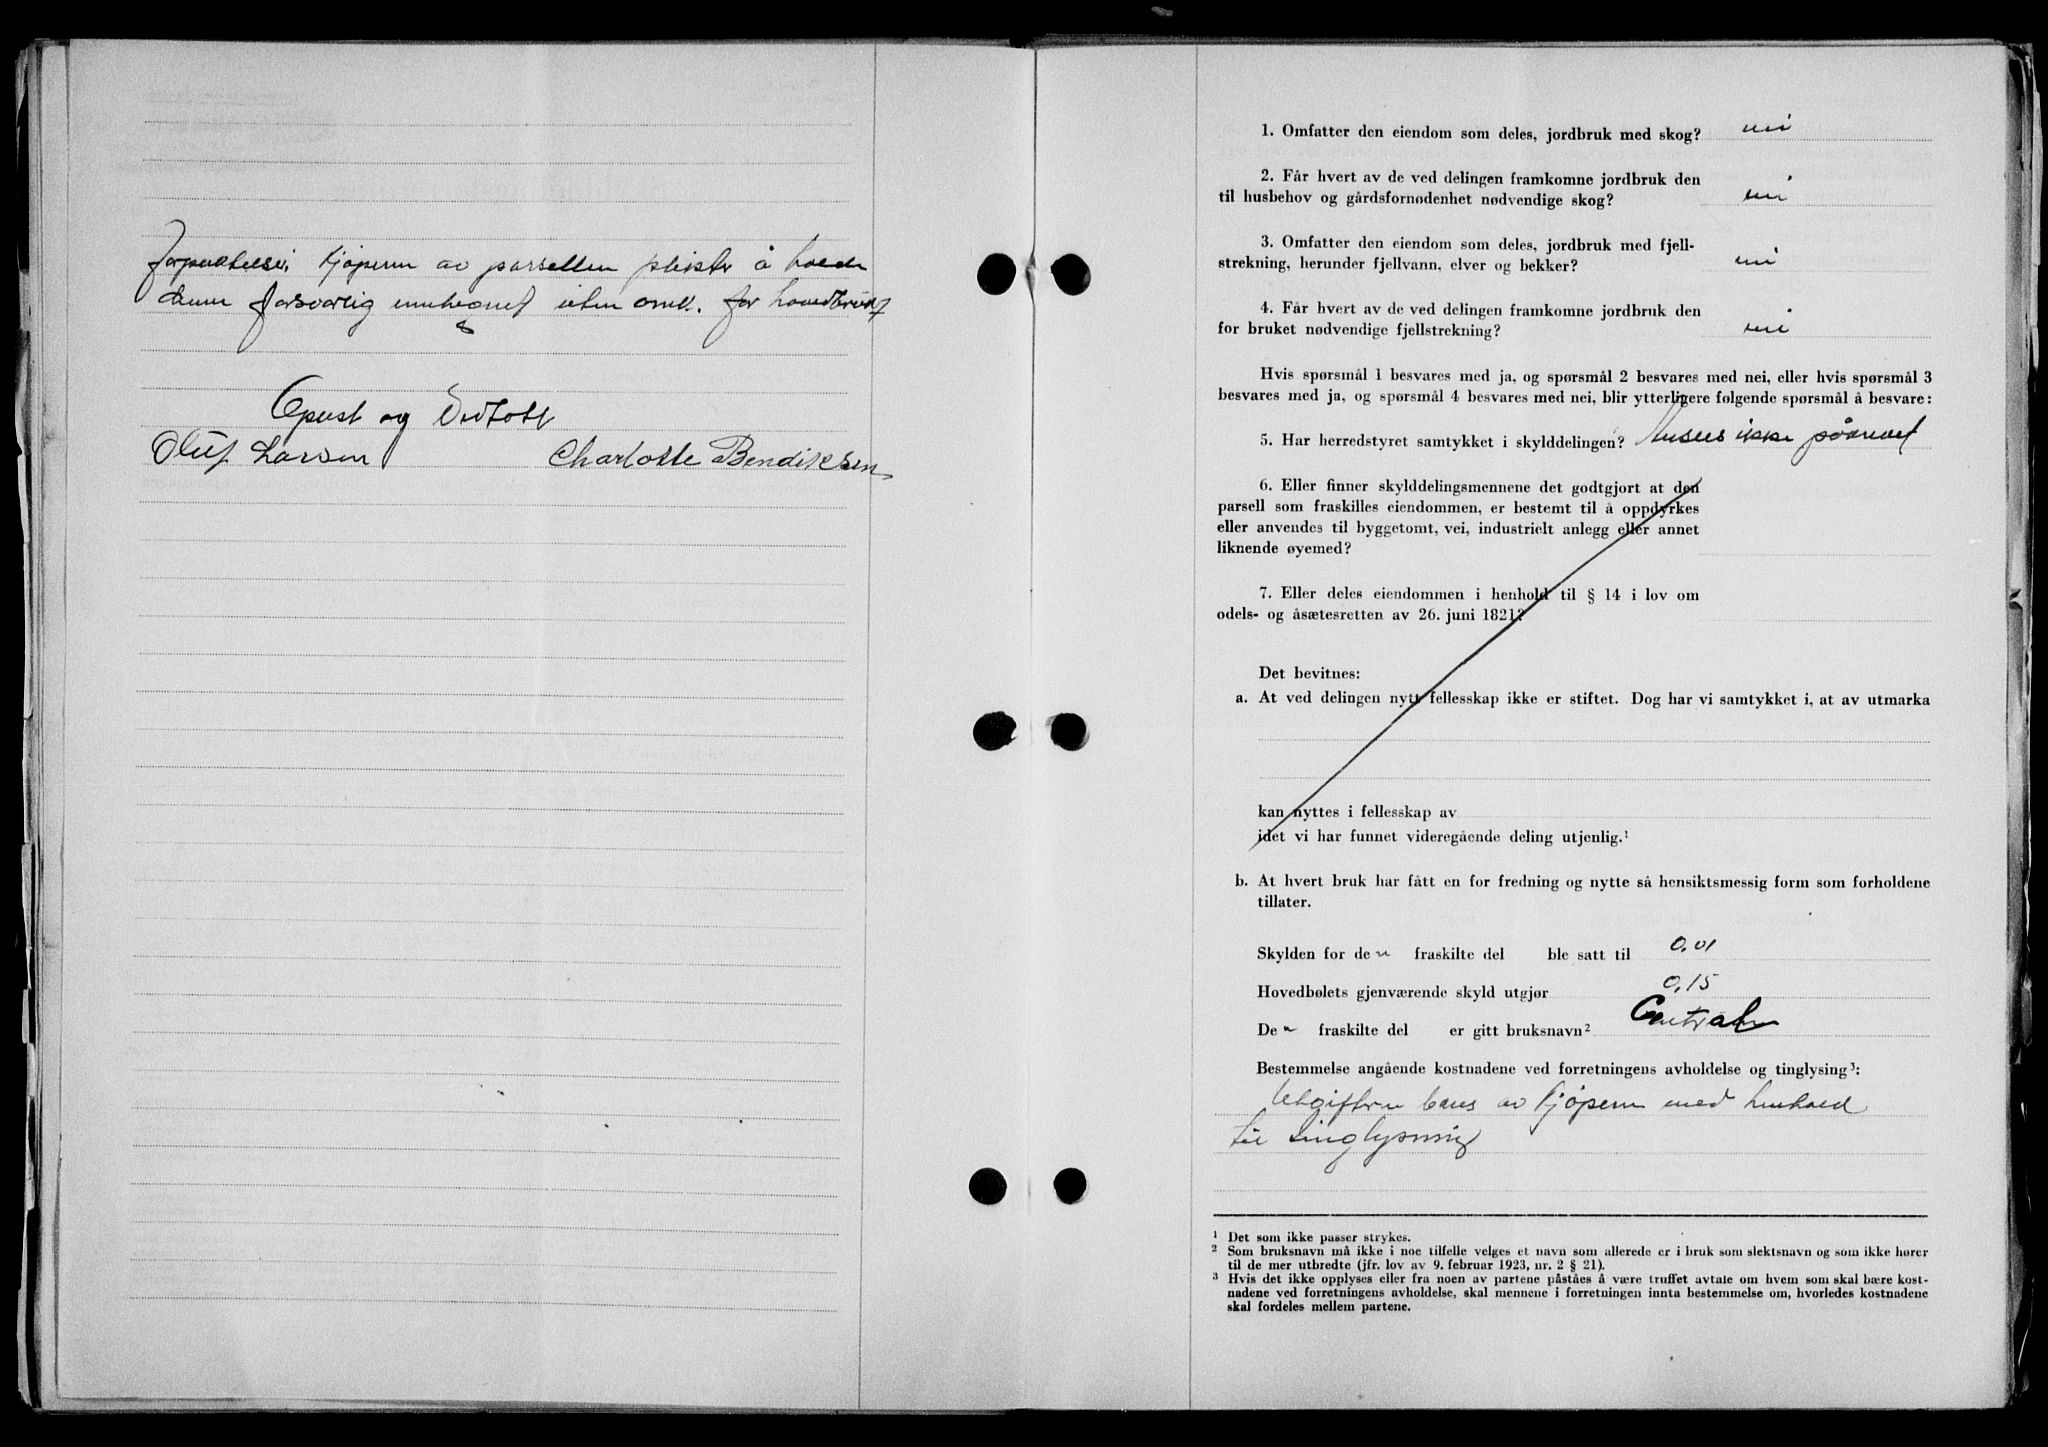 forpliktelse, kjøperen av parsellen plikter å holde
denne forsvarlig innhegnet uten omk. for hovedbruk
Opplest og vedtatt
Oluf Larsen Charlotte Bendiksen
1. Omfatter den eiendom som deles, jordbruk med skog? nei
2. Får hvert av de ved delingen framkomne jordbruk den
til husbehov og gårdsfornødenhet nødvendige skog? nei
3. Omfatter den eiendom som deles, jordbruk med fjell-
strekning, herunder fjellvann, elver og bekker? nei
4. Får hvert av de ved delingen framkomne jordbruk den
for bruket nødvendige fjellstrekning? nei
Hvis spørsmål 1 besvares med ja, og spørsmål 2 besvares med nei, eller hvis spørsmål 3
besvares med ja, og spørsmål 4 besvares med nei, blir ytterligere følgende spørsmål å besvare:
5. Har herredstyret samtykket i skylddelingen? Ansees ikke påkrevet
6. Eller finner skylddelingsmennene det godtgjort at den
parsell som fraskilles eiendommen, er bestemt til å oppdyrkes
eller anvendes til byggetomt, vei, industrielt anlegg eller annet
liknende øyemed?
7. Eller deles eiendommen i henhold til § 14 i lov om
odels- og åsætesretten av 26. juni 1821?
Det bevitnes:
a. At ved delingen nytt fellesskap ikke er stiftet. Dog har vi samtykket i, at av utmarka
kan nyttes i fellesskap av
idet vi har funnet videregående deling utjenlig.¹
b. At hvert bruk har fått en for fredning og nytte så hensiktsmessig form som forholdene
tillater.
Skylden for den fraskilte del ble satt til 0,01
Hovedbølets gjenværende skyld utgjør 0,15
Den fraskilte del er gitt bruksnavn²
Bestemmelse angående kostnadene ved forretningens avholdelse og tinglysing³:
Utgiftene bæres av kjøperen med henhold
til tinglysning
¹ Det som ikke passer strykes.
² Som bruksnavn må ikke i noe tilfelle velges et navn som allerede er i bruk som slektsnavn og som ikke hører
til de mer utbredte (jfr. lov av 9. februar 1923, nr. 2 § 21).
³ Hvis det ikke opplyses eller fra noen av partene påståes å være truffet avtale om hvem som skal bære kost-
nadene ved forretningens avholdelse, skal mennene i forretningen innta bestemmelse om, hvorledes kostnadene
skal fordeles mellem partene.